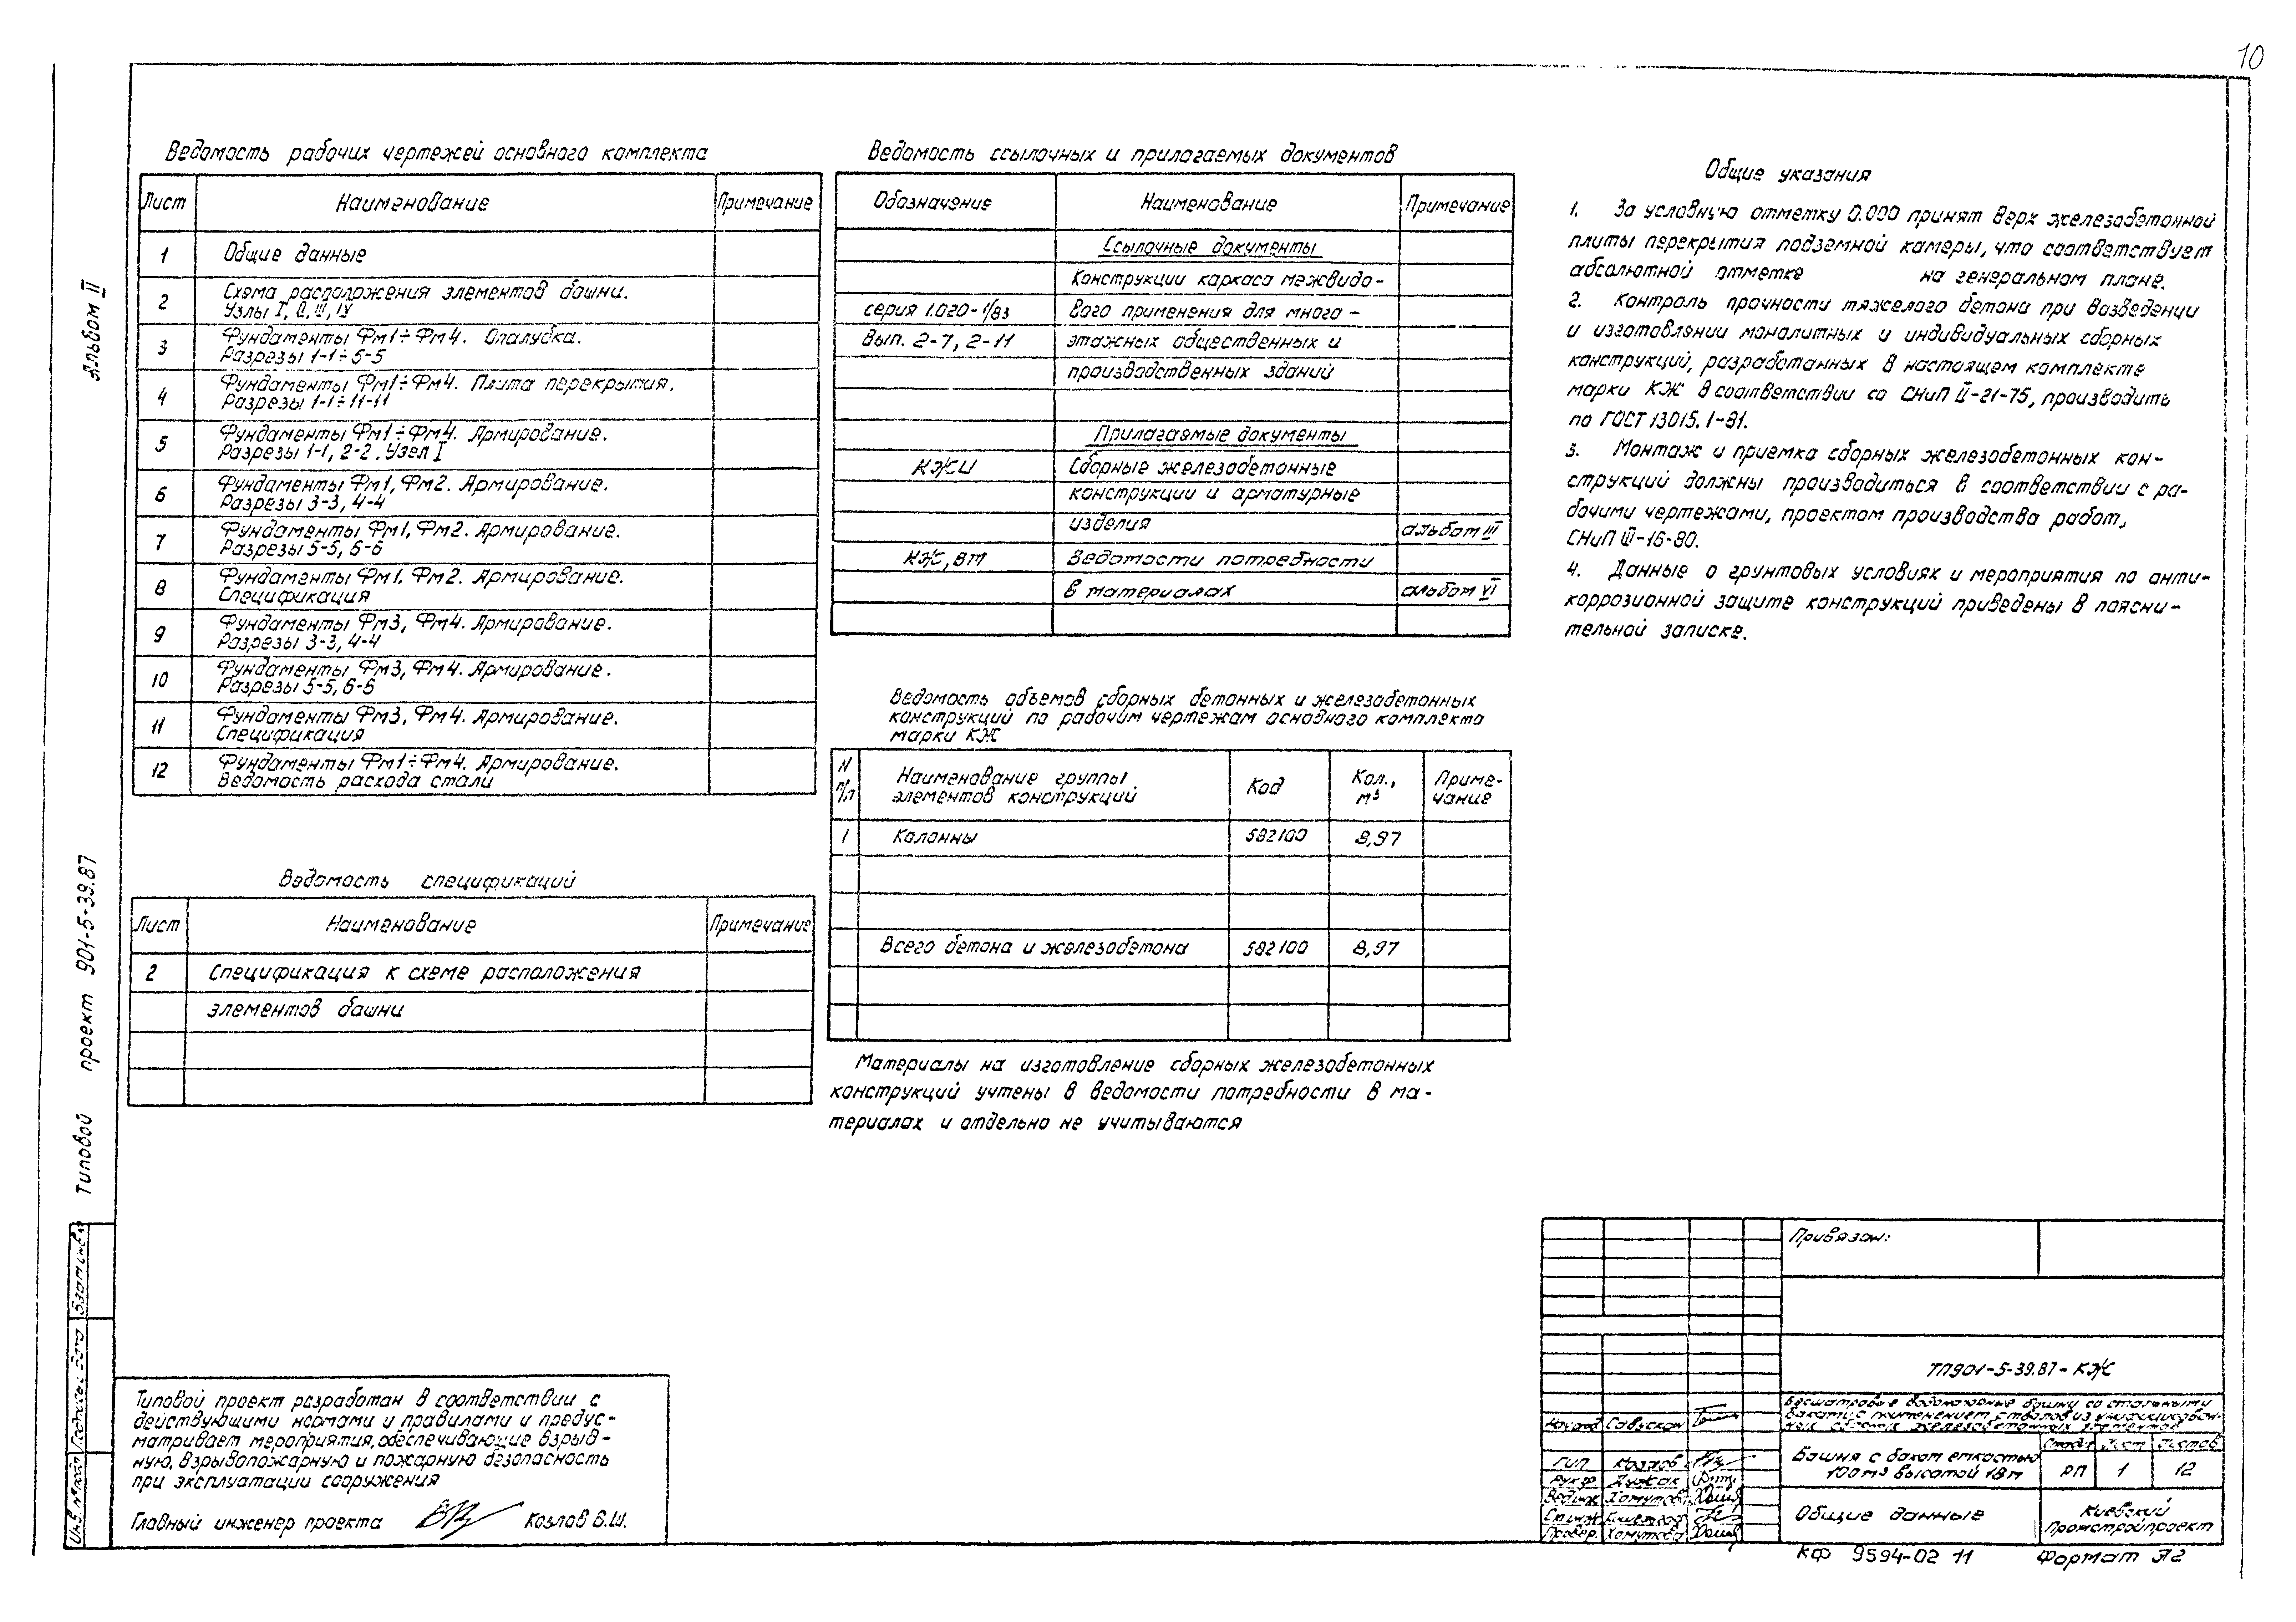 10
Альбом II
Типовой проект 901-5-39.87
Ведомость рабочих чертежей основного комплекта
Лист Наименование Примечание
1 Общие данные
2 Схема расположения элементов башни.
Узлы I, II, III, IV
3 Фундаменты Фм1÷Фм4. Опалубка.
Разрезы 1-1÷5-5
4 Фундаменты Фм1÷Фм4. Плита перекрытия.
Разрезы 1-1÷11-11
5 Фундаменты Фм1÷Фм4. Армирование.
Разрезы 1-1, 2-2. Узел I
6 Фундаменты Фм1, Фм2. Армирование.
Разрезы 3-3, 4-4
7 Фундаменты Фм1, Фм2. Армирование.
Разрезы 5-5, 6-6
8 Фундаменты Фм1. Фм2. Армирование.
Спецификация
9 Фундаменты Фм3, Фм4. Армирование.
Разрезы 3-3, 4-4
10 Фундаменты Фм3, Фм4. Армирование.
Разрезы 5-5, 6-6
11 Фундаменты Фм3, Фм4. Армирование.
Спецификация
12 Фундаменты Фм1÷Фм4. Армирование.
Ведомость расхода стали
Ведомость спецификаций
Лист Наименование Примечание
2 Спецификация к схеме расположения
элементов башни
Ведомость ссылочных и прилагаемых документов
Обозначение Наименование Примечание
Ссылочные документы
Конструкции каркаса межвидо-
серия 1.020-1/83 вого применения для много-
Вып. 2-7, 2-11 этажных общественных и
производственных зданий
Прилагаемые документы
КЖИ Сборные железобетонные
конструкции и арматурные
изделия альбом III
КЖ, ВМ Ведомости потребности
в материалах альбом VI
Ведомость объемов сборных бетонных и железобетонных
конструкций по рабочим чертежам основного комплекта
марки КЖ
N п/п Наименование группы элементов конструкций Код Кол., м³ Приме-
чание
1 Колонны 582100 8,97
Всего бетона и железобетона 582100 8,97
Материалы на изготовление сборных железобетонных
конструкций учтены в ведомости потребности в ма-
териалах и отдельно не учитываются
Общие указания
1. За условную отметку 0.000 принят верх железобетонной
плиты перекрытия подземной камеры, что соответствует
абсолютной отметке на генеральном плане.
2. Контроль прочности тяжелого бетона при возведении
и изготовлении монолитных и индивидуальных сборных
конструкций, разработанных в настоящем комплекте
марки КЖ в соответствии со СНиП II-21-75, производить
по ГОСТ 13015.1-81.
3. Монтаж и приемка сборных железобетонных кон-
струкций должны производиться в соответствии с ра-
бочими чертежами, проектом производства работ,
СНиП III-16-80.
4. Данные о грунтовых условиях и мероприятия по анти-
коррозионной защите конструкций приведены в поясни-
тельной записке.
Типовой проект разработан в соответствии с
действующими нормами и правилами и предус-
матривает мероприятия, обеспечивающие взрыв-
ную, взрывопожарную и пожарную безопасность
при эксплуатации сооружения
Главный инженер проекта Козлов В.Ш.
Инв. № подл. Подпись и дата Взам инв.
Привязан:
ТП901-5-39.87-КЖ
Бесшатровые водонапорные башни со стальными
баками с применением стволов из унифицирован-
ных сборных железобетонных элементов
Нач.отд Савускан
ГИП Козлов
Рук.гр Дужак
Вед.инж Хомутова
Ст.инж
Провер. Хомутова
Башня с баком емкостью
100 м³ высотой 18 м
Стадия Лист Листов
РП 1 12
Общие данные
Киевский
Промстройпроект
КФ 9594-02 11 Формат А2